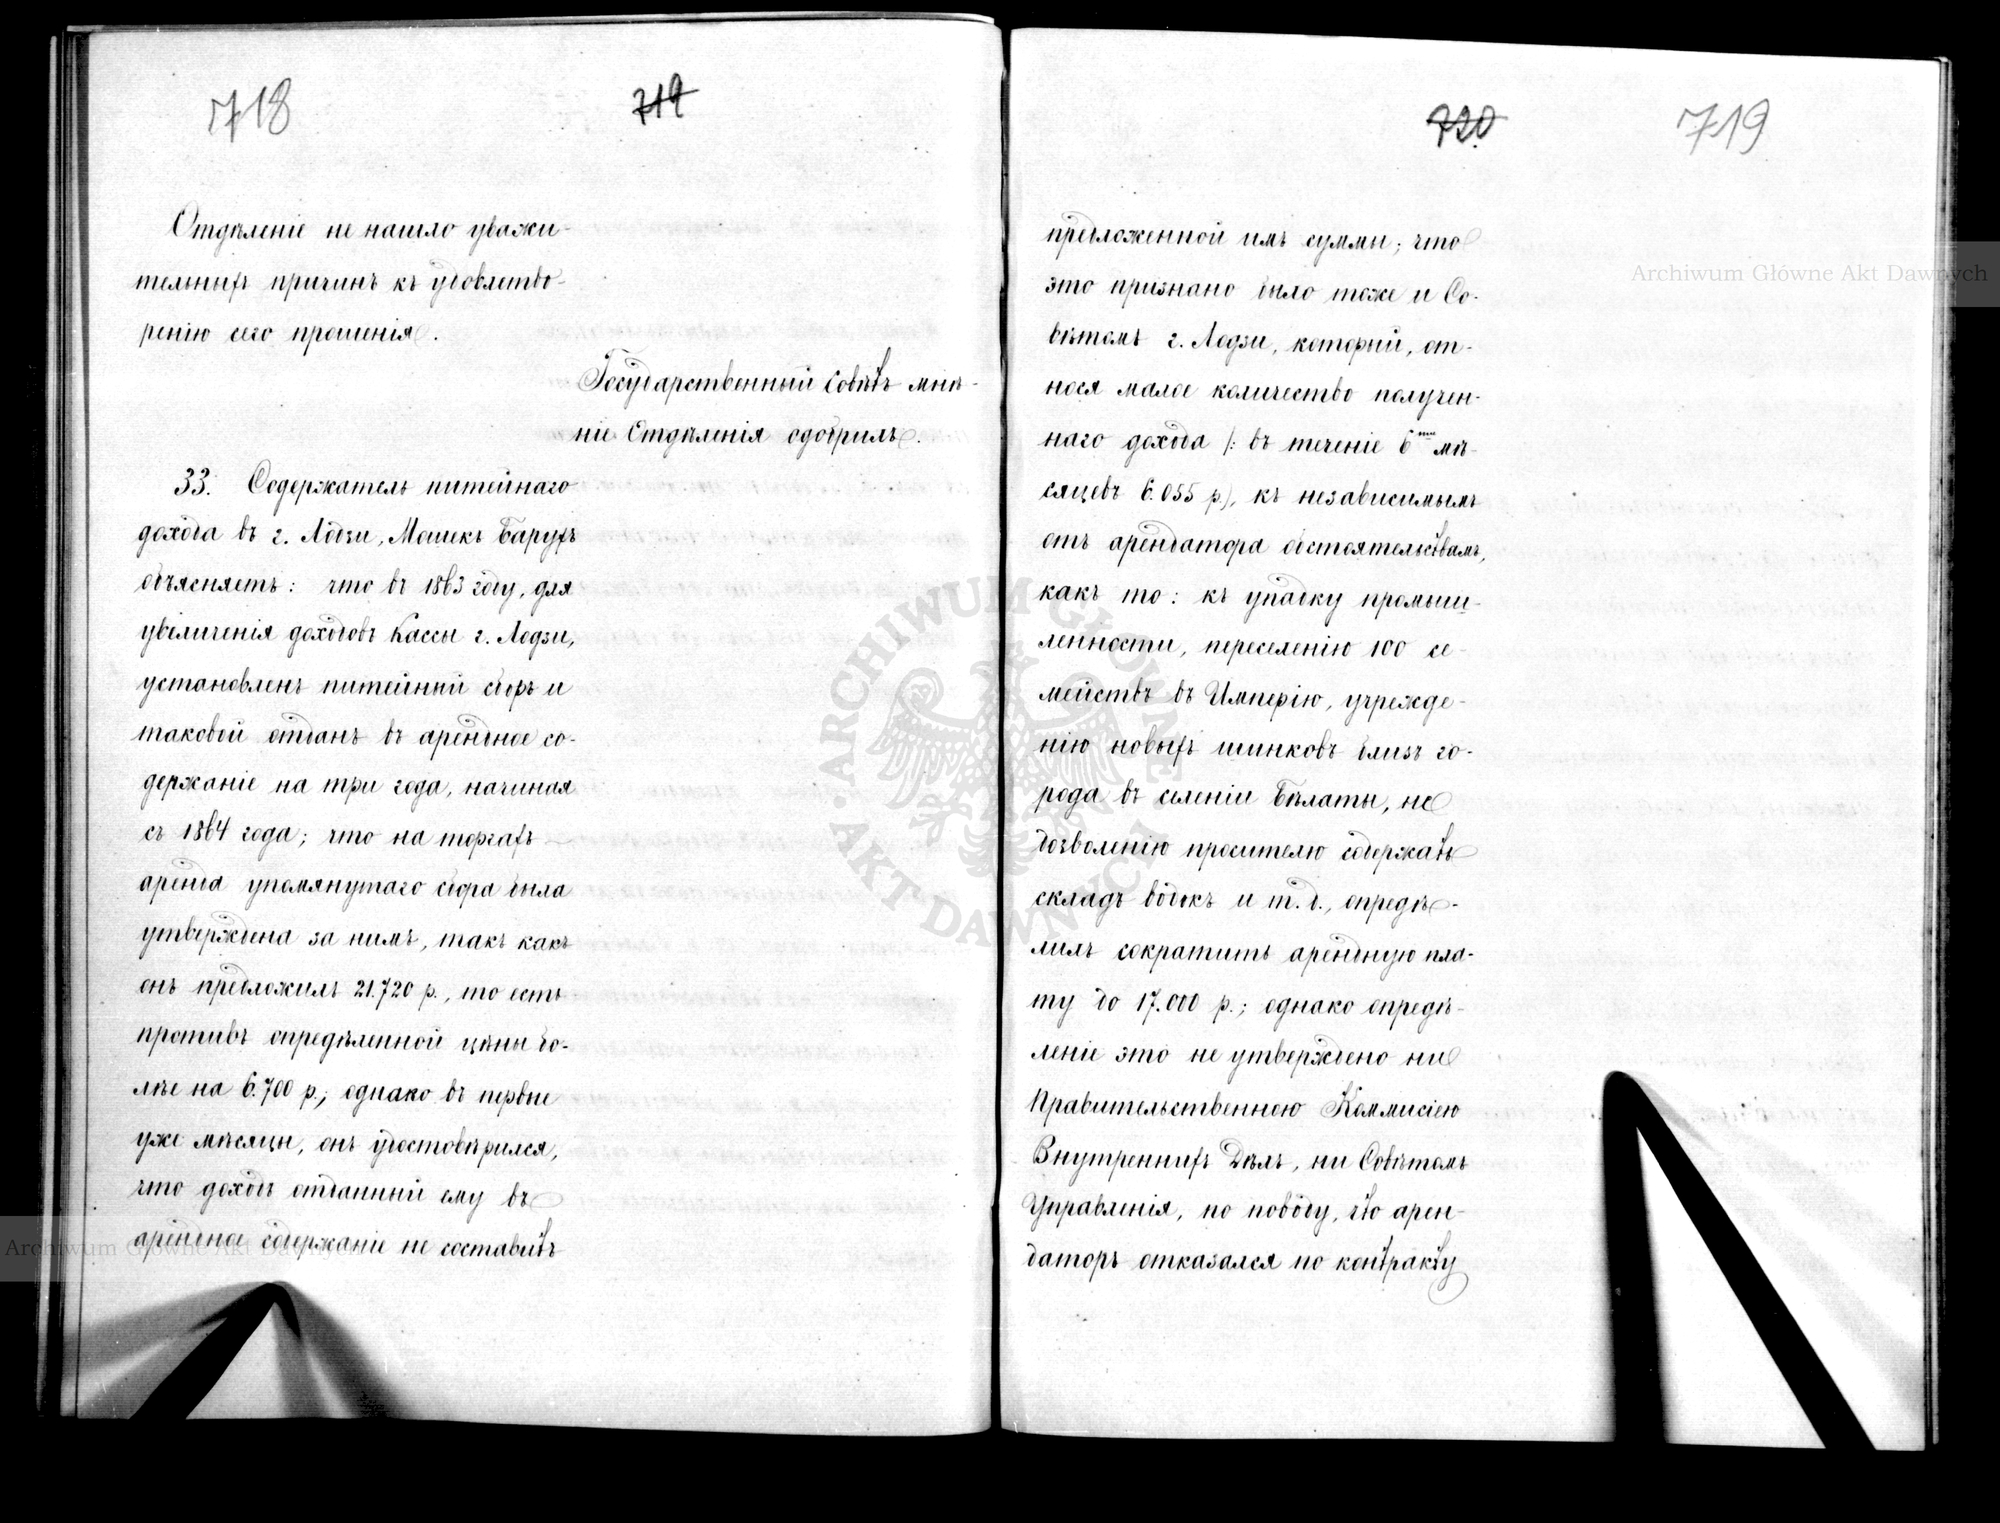 718
719
Отдѣленіе не нашло уважи-
тельныхъ причинъ къ удовлетво-
ренію сего прошенія.
Государственный Совѣтъ мнѣ-
ніе Отдѣленія одобрилъ.
33. Содержатель питейнаго
дохода въ г. Лодзи, Мошекъ Барухъ
объясняетъ: что въ 1863 году, для
увеличенія доходовъ Кассы г. Лодзи,
установленъ питейный сборъ и
таковой отданъ въ арендное со-
держаніе на три года, начиная
съ 1864 года; что на торгахъ
аренда упомянутаго сбора была
утверждена за нимъ, такъ какъ
онъ предложилъ 21.720 р., то есть
противъ опредѣленной цѣны бо-
лѣе на 6.700 р.; однако въ первые
уже мѣсяцы, онъ удостовѣрился,
что доходъ отданный ему въ
арендное содержаніе не составитъ
720
719
предложенной имъ суммы; что
это признано было тоже и Со-
вѣтомъ г. Лодзи, который, от-
нося малое количество получен-
наго дохода /: въ теченіе 6ти мѣ-
сяцевъ 6.055 р.), къ независимымъ
отъ арендатора обстоятельствамъ,
какъ то: къ упадку промыш-
ленности, переселенію 100 се-
мействъ въ Имперію, учрежде-
нію новыхъ шинковъ близъ го-
рода въ селеніи Бѣлаты, не
дозволенію просителю содержать
складъ водокъ и т.д., опредѣ-
лилъ сократить арендную пла-
ту до 17.000 р.; однако опредѣ-
леніе это не утверждено ни
Правительственною Коммисіею
Внутреннихъ Дѣлъ, ни Совѣтомъ
Управленія, по поводу, что арен-
даторъ отказался по контракту
Archiwum Główne Akt Dawnych
Archiwum Główne Akt Dawnych
ARCHIWUM GŁÓWNE AKT DAWNYCH